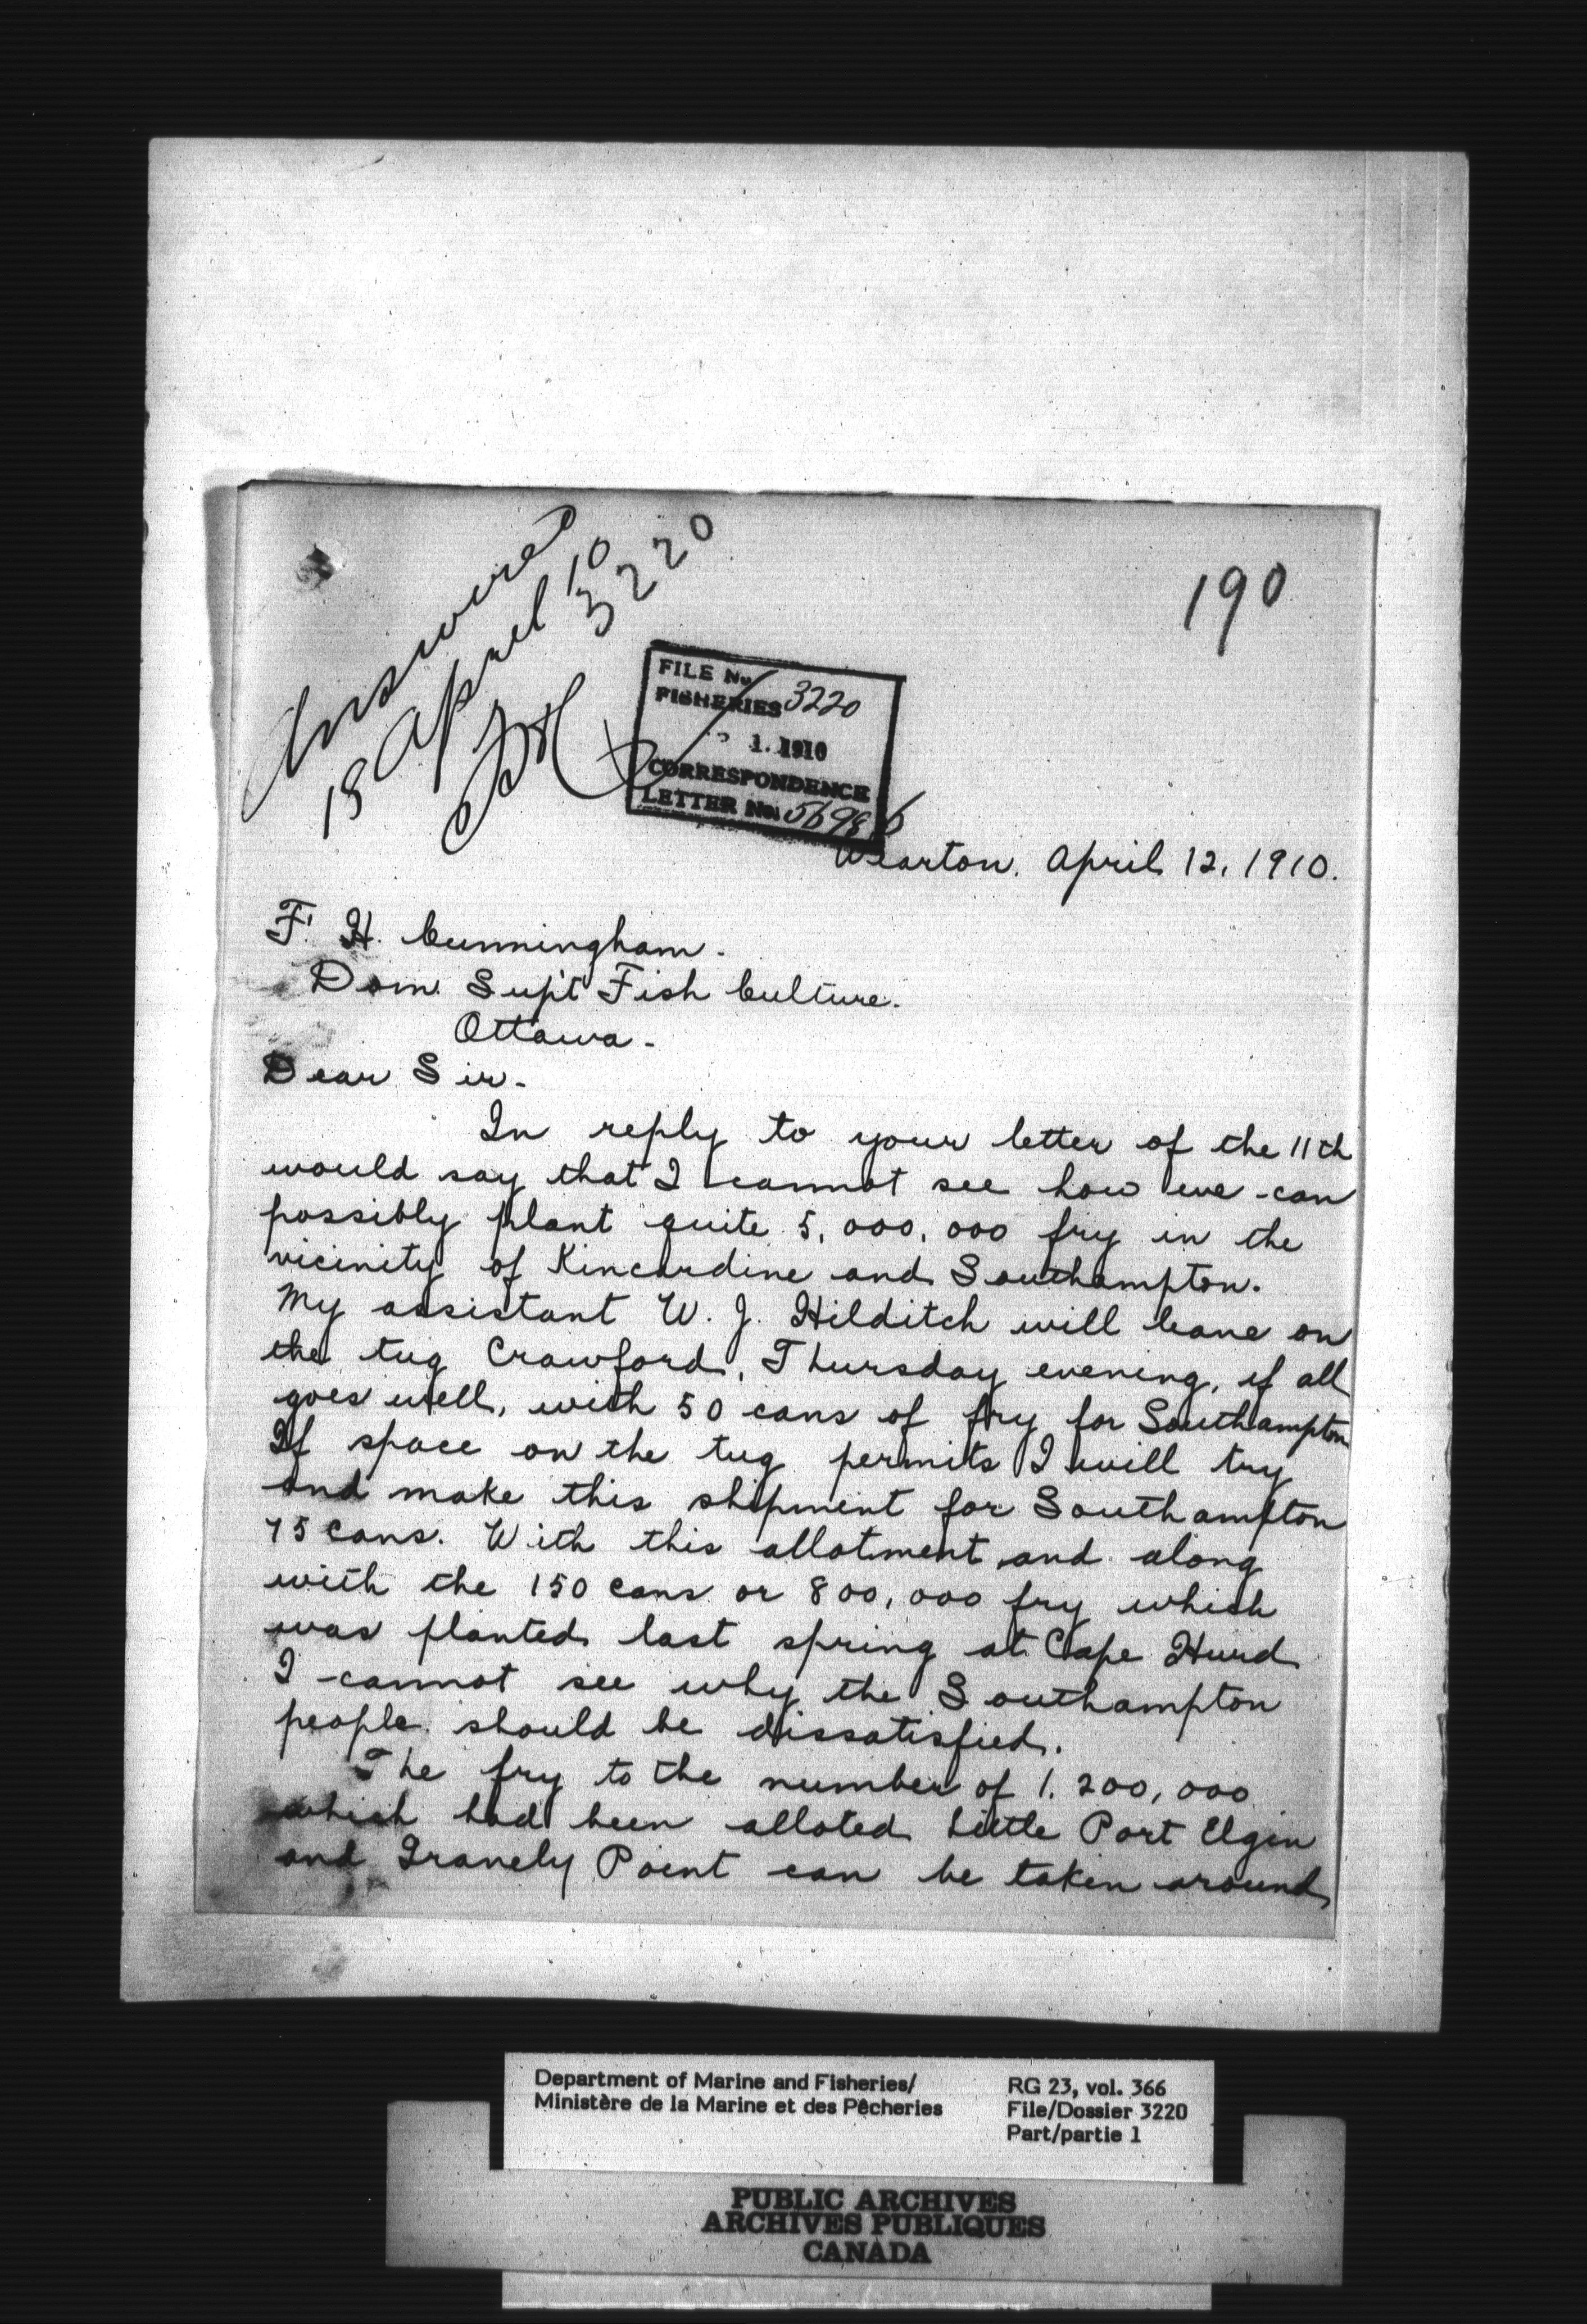 Answered
18 April 10
3220
190
FILE No.
FISHERIES 3220
1. 1910
CORRESPONDENCE
LETTER No. 5698
Wiarton. April 12, 1910.
F. H. Cunningham.
Dom. Sup't Fish Culture.
Ottawa.
Dear Sir.
In reply to your letter of the 11th
would say that I cannot see how we can
possibly plant quite 5,000,000 fry in the
vicinity of Kincardine and Southampton.
My assistant W. J. Hilditch will leave on
the tug Crawford, Thursday evening, if all
goes well, with 50 cans of fry for Southampton
If space on the tug permits I will try
and make this shipment for Southampton
75 Cans. With this allotment and along
with the 150 cans or 800,000 fry which
was planted last spring at Cape Hurd
I cannot see why the Southampton
people should be dissatisfied.
The fry to the number of 1.200,000
which had been alloted Little Port Elgin
and Gravely Point can be taken around
Department of Marine and Fisheries/
Ministère de la Marine et des Pêcheries
RG 23, vol. 366
File/Dossier 3220
Part/partie 1
PUBLIC ARCHIVES
ARCHIVES PUBLIQUES
CANADA